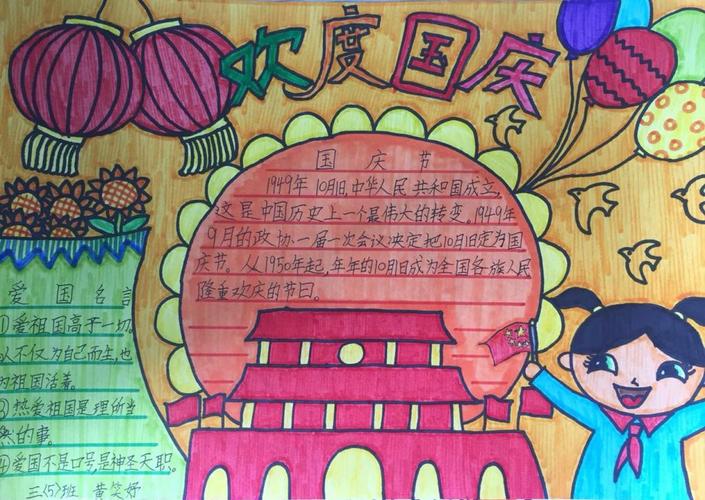 欢度国庆
国庆节
1949年10月1日,中华人民共和国成立,
这是中国历史上一个最伟大的转变。1949年
9月的政协一届一次会议决定把10月1日定为国
庆节。从1950年起,年年的10月1日成为全国各族人民
隆重欢庆的节日。
爱国名言
①爱祖国高于一切。
人不仅为自己而生,也
为祖国活着。
③热爱祖国是理所当
然的事。
④爱国不是口号,是神圣天职。
三〈5〉班 黄笑妤